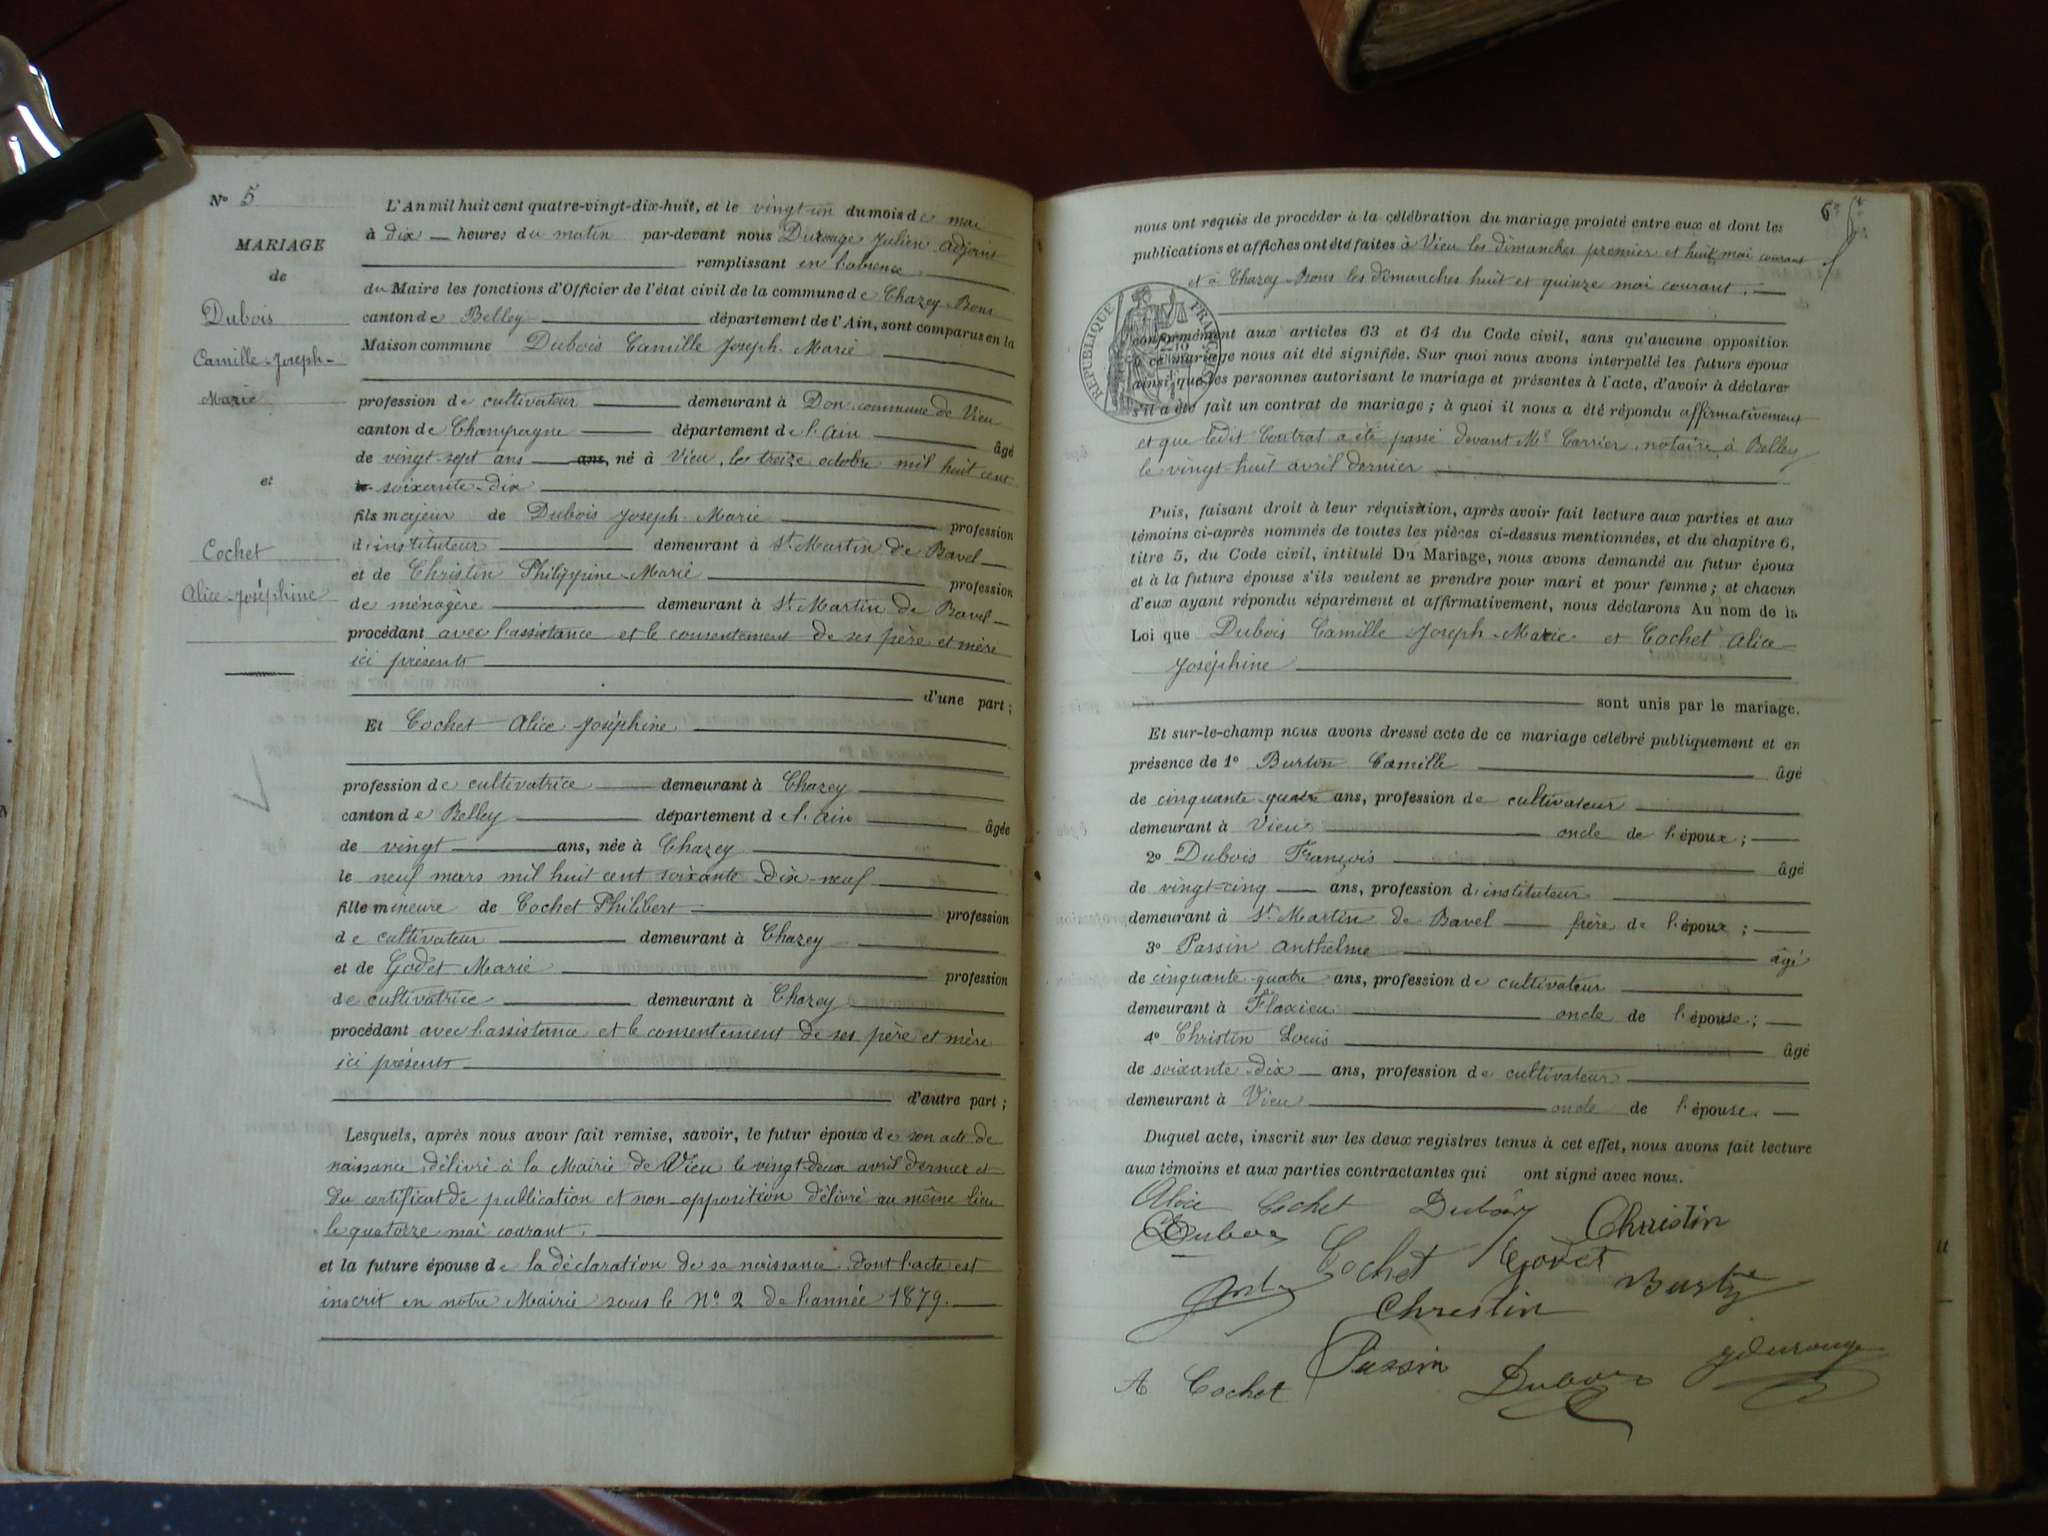 N° 5
MARIAGE
de
Dubois
Camille-Joseph-
Marie
et
Cochet
Alice-Joséphine
L'An mil huit cent quatre-vingt-dix-huit, et le vingt-un du mois de mai
à dix heures du matin par-devant nous Durouge Julien adjoint
remplissant en l'absence
du Maire les fonctions d'Officier de l'état civil de la commune de Chazey-Bons
canton de Belley département de l'Ain, sont comparus en la
Maison commune Dubois Camille Joseph-Marie
profession de cultivateur demeurant à Don commune de Vieu
canton de Champagne département de l'Ain âgé
de vingt-sept ans ans, né à Vieu, le treize octobre mil huit cent
soixante-dix
fils majeur de Dubois Joseph-Marie profession
d'instituteur demeurant à St Martin de Bavel
et de Christin Philippine-Marie profession
de ménagère demeurant à St Martin de Bavel
procédant avec l'assistance et le consentement de ses père et mère
ici présents
d'une part ;
Et Cochet Alice-Joséphine
profession de cultivatrice demeurant à Chazey
canton de Belley département de l'Ain âgée
de vingt ans, née à Chazey
le neuf mars mil huit cent soixante-dix-neuf
fille mineure de Cochet Philibert profession
de cultivateur demeurant à Chazey
et de Godet Marie profession
de cultivatrice demeurant à Chazey
procédant avec l'assistance et le consentement de ses père et mère
ici présents
d'autre part ;
Lesquels, après nous avoir fait remise, savoir, le futur époux de son acte de
naissance, délivré à la Mairie de Vieu le vingt-deux avril dernier et
du certificat de publication et non-opposition délivré au même lieu
le quatorze mai courant.
et la future épouse de la déclaration de sa naissance dont l'acte est
inscrit en notre Mairie sous le N° 2 de l'année 1879.
nous ont requis de procéder à la célébration du mariage projeté entre eux et dont les
publications et affiches ont été faites à Vieu les dimanches premier et huit mai courant
et à Chazey-Bons les dimanches huit et quinze mai courant.
RÉPUBLIQUE FRANÇAISE
conformément aux articles 63 et 64 du Code civil, sans qu'aucune opposition
à ce mariage nous ait été signifiée. Sur quoi nous avons interpellé les futurs époux
ainsi que les personnes autorisant le mariage et présentes à l'acte, d'avoir à déclarer
s'il a été fait un contrat de mariage ; à quoi il nous a été répondu affirmativement
et que ledit Contrat a été passé devant Me Carrier, notaire à Belley
le vingt-huit avril dernier
Puis, faisant droit à leur réquisition, après avoir fait lecture aux parties et aux
témoins ci-après nommés de toutes les pièces ci-dessus mentionnées, et du chapitre 6,
titre 5, du Code civil, intitulé Du Mariage, nous avons demandé au futur époux
et à la future épouse s'ils veulent se prendre pour mari et pour femme ; et chacun
d'eux ayant répondu séparément et affirmativement, nous déclarons Au nom de la
Loi que Dubois Camille Joseph-Marie et Cochet Alice-
Joséphine
sont unis par le mariage.
Et sur-le-champ nous avons dressé acte de ce mariage célébré publiquement et en
présence de 1° Burtin Camille âgé
de cinquante-quatre ans, profession de cultivateur
demeurant à Vieu oncle de l'époux ;
2° Dubois François âgé
de vingt-cinq ans, profession d'instituteur
demeurant à St Martin de Bavel frère de l'époux ;
3° Passin Anthelme âgé
de cinquante-quatre ans, profession de cultivateur
demeurant à Flaxieu oncle de l'épouse ;
4° Christin Louis âgé
de soixante-dix ans, profession de cultivateur
demeurant à Vieu oncle de l'épouse.
Duquel acte, inscrit sur les deux registres tenus à cet effet, nous avons fait lecture
aux témoins et aux parties contractantes qui ont signé avec nous.
Alice Cochet Dubois
Dubois Christin
Cochet Godet
Christin
Passin
A Cochet Dubois JDurouge